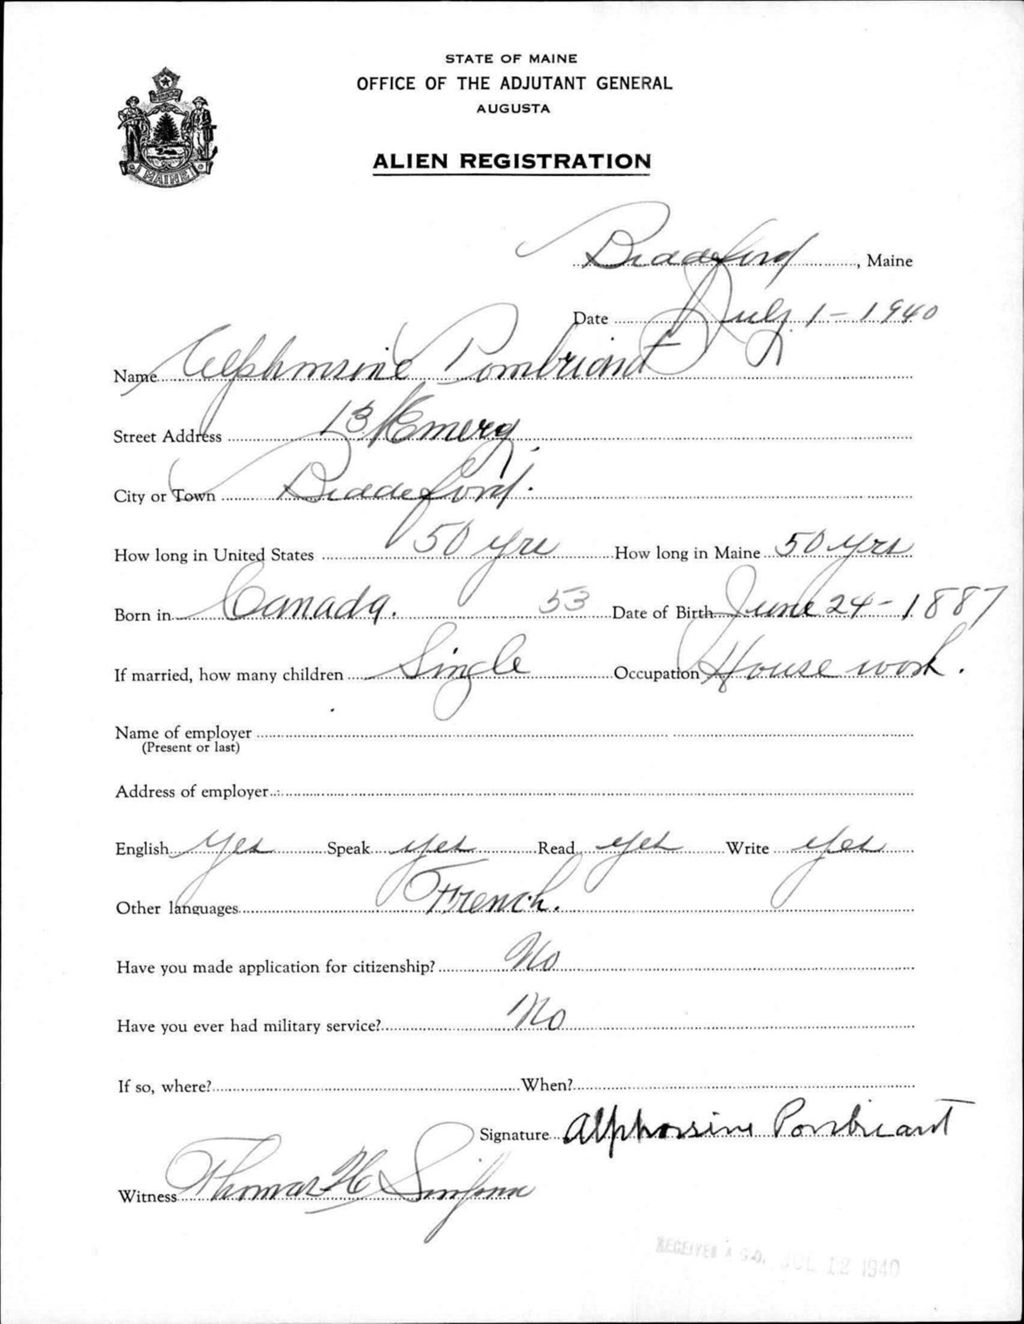 STATE OF MAINE
OFFICE OF THE ADJUTANT GENERAL
AUGUSTA
ALIEN REGISTRATION
MAINE
Biddeford, Maine
Date July 1-1940
Name Alphonsine Pombriant
Street Address 13 Emery
City or Town Biddeford.
How long in United States 50 yrs How long in Maine 50 yrs
Born in Canada. 53 Date of Birth June 24-1887
If married, how many children Single Occupation House work.
Name of employer
(Present or last)
Address of employer
English Yes Speak yes Read yes Write yes
Other languages French.
Have you made application for citizenship? No
Have you ever had military service? No
If so, where? When?
Signature Alphonsine Pombriant
Witness Thomas H Simpson
RECEIVED A.G.O. JUL 12 1940